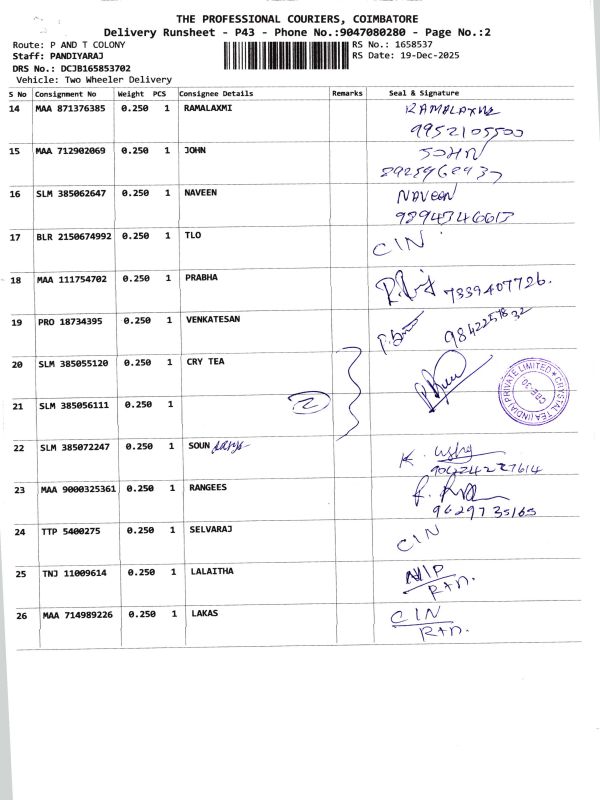 THE PROFESSIONAL COURIERS, COIMBATORE
Delivery Runsheet - P43 - Phone No.:9047080280 - Page No.:2
Route: P AND T COLONY
RS No.: 1658537
Staff: PANDIYARAJ
RS Date: 19-Dec-2025
DRS No.: DCJB165853702
Vehicle: Two Wheeler Delivery
S No Consignment No Weight PCS Consignee Details Remarks Seal & Signature
14 MAA 871376385 0.250 1 RAMALAXMI RAMALAXMI
9952105500
15 MAA 712902069 0.250 1 JOHN JOHN
16 SLM 385062647 0.250 1 NAVEEN NAVEEN
17 BLR 2150674992 0.250 1 TLO CIN
18 MAA 111754702 0.250 1 PRABHA 7339407726.
19 PRO 18734395 0.250 1 VENKATESAN
20 SLM 385055120 0.250 1 CRY TEA
CRYSTAL TEA (INDIA) PRIVATE LIMITED
CBE-30
21 SLM 385056111 0.250 1 2
22 SLM 385072247 0.250 1 SOUN K.
23 MAA 9000325361 0.250 1 RANGEES
9629735165
24 TTP 5400275 0.250 1 SELVARAJ CIN
25 TNJ 11009614 0.250 1 LALAITHA NIP
Rtn.
26 MAA 714989226 0.250 1 LAKAS CIN
Rtn.